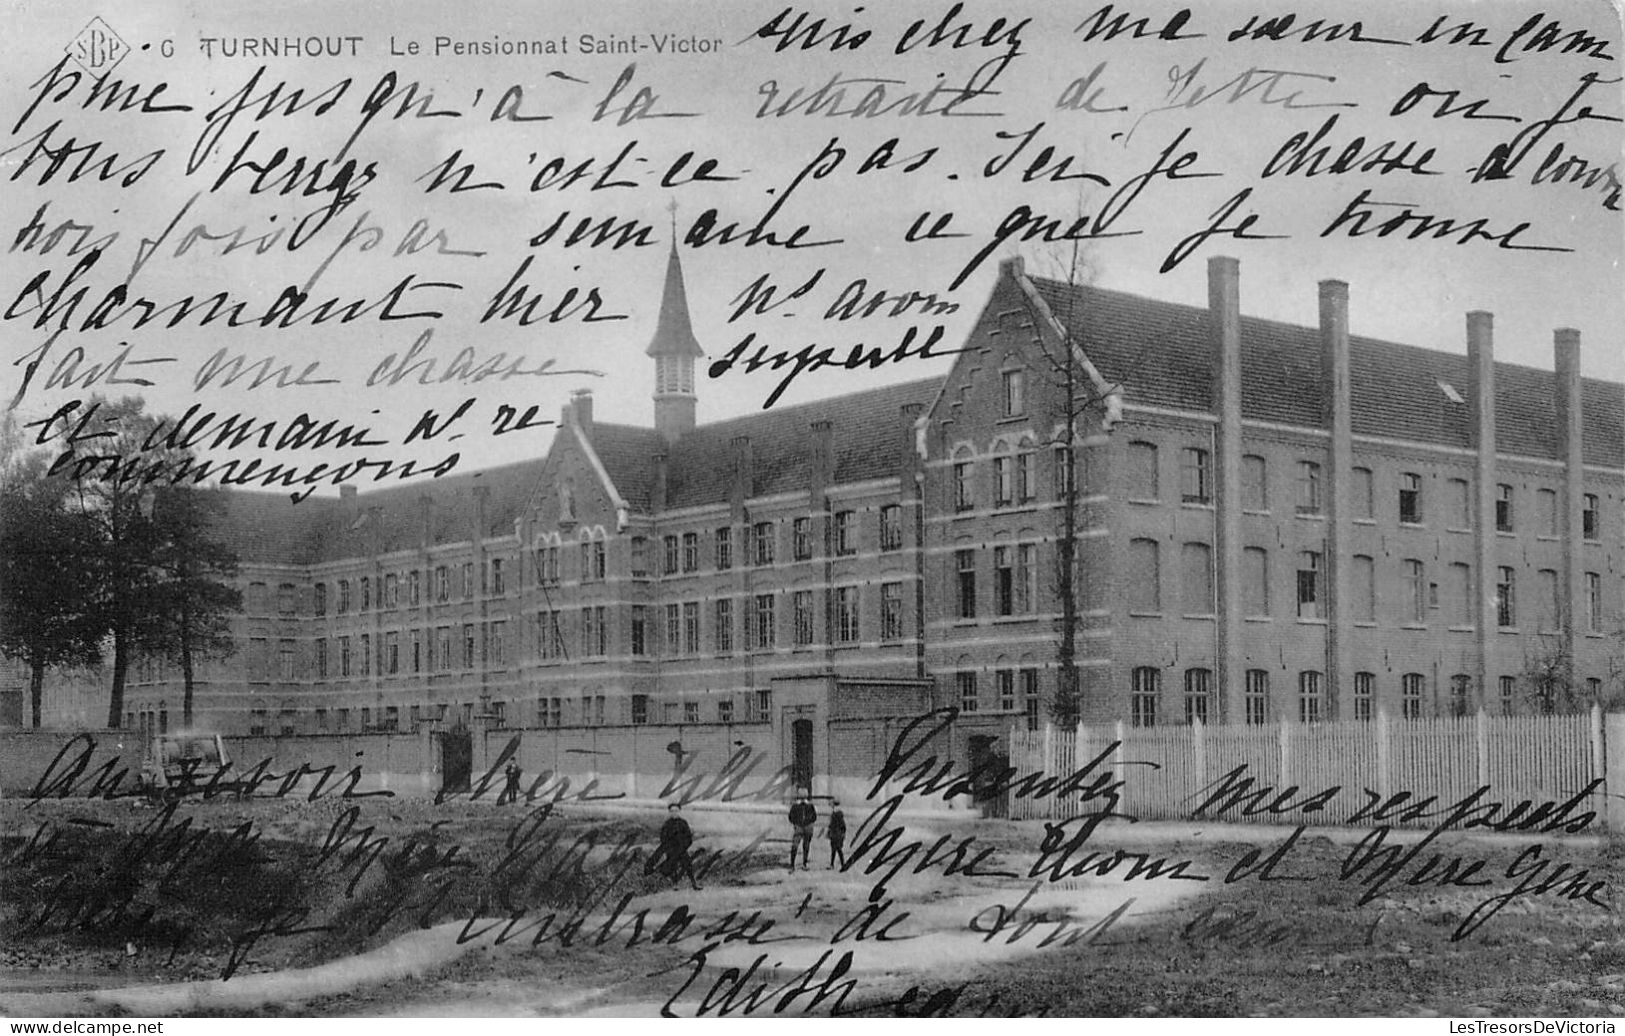 SBP • 6 TURNHOUT Le Pensionnat Saint-Victor
suis chez ma sœur en Cam
pine jusqu'à la retraite de Jette où je
vous verrez n'est-ce pas. Ici je chasse a cour
trois fois par semaine ce que je trouve
charmant hier ns. avons
fait une chasse superbe
et demain ns. re
commençons.
Au revoir chère Présentez mes respects
à Mère et Mère
je embrasse de tout
Edith
LesTresorsDeVictoria